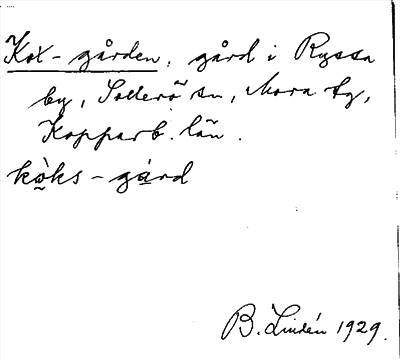 Kox-gården, gård i Ryssa
by, Sollerö sn, Mora tg,
Kopparb. län.
kòks-gård
B. Lindén 1929.